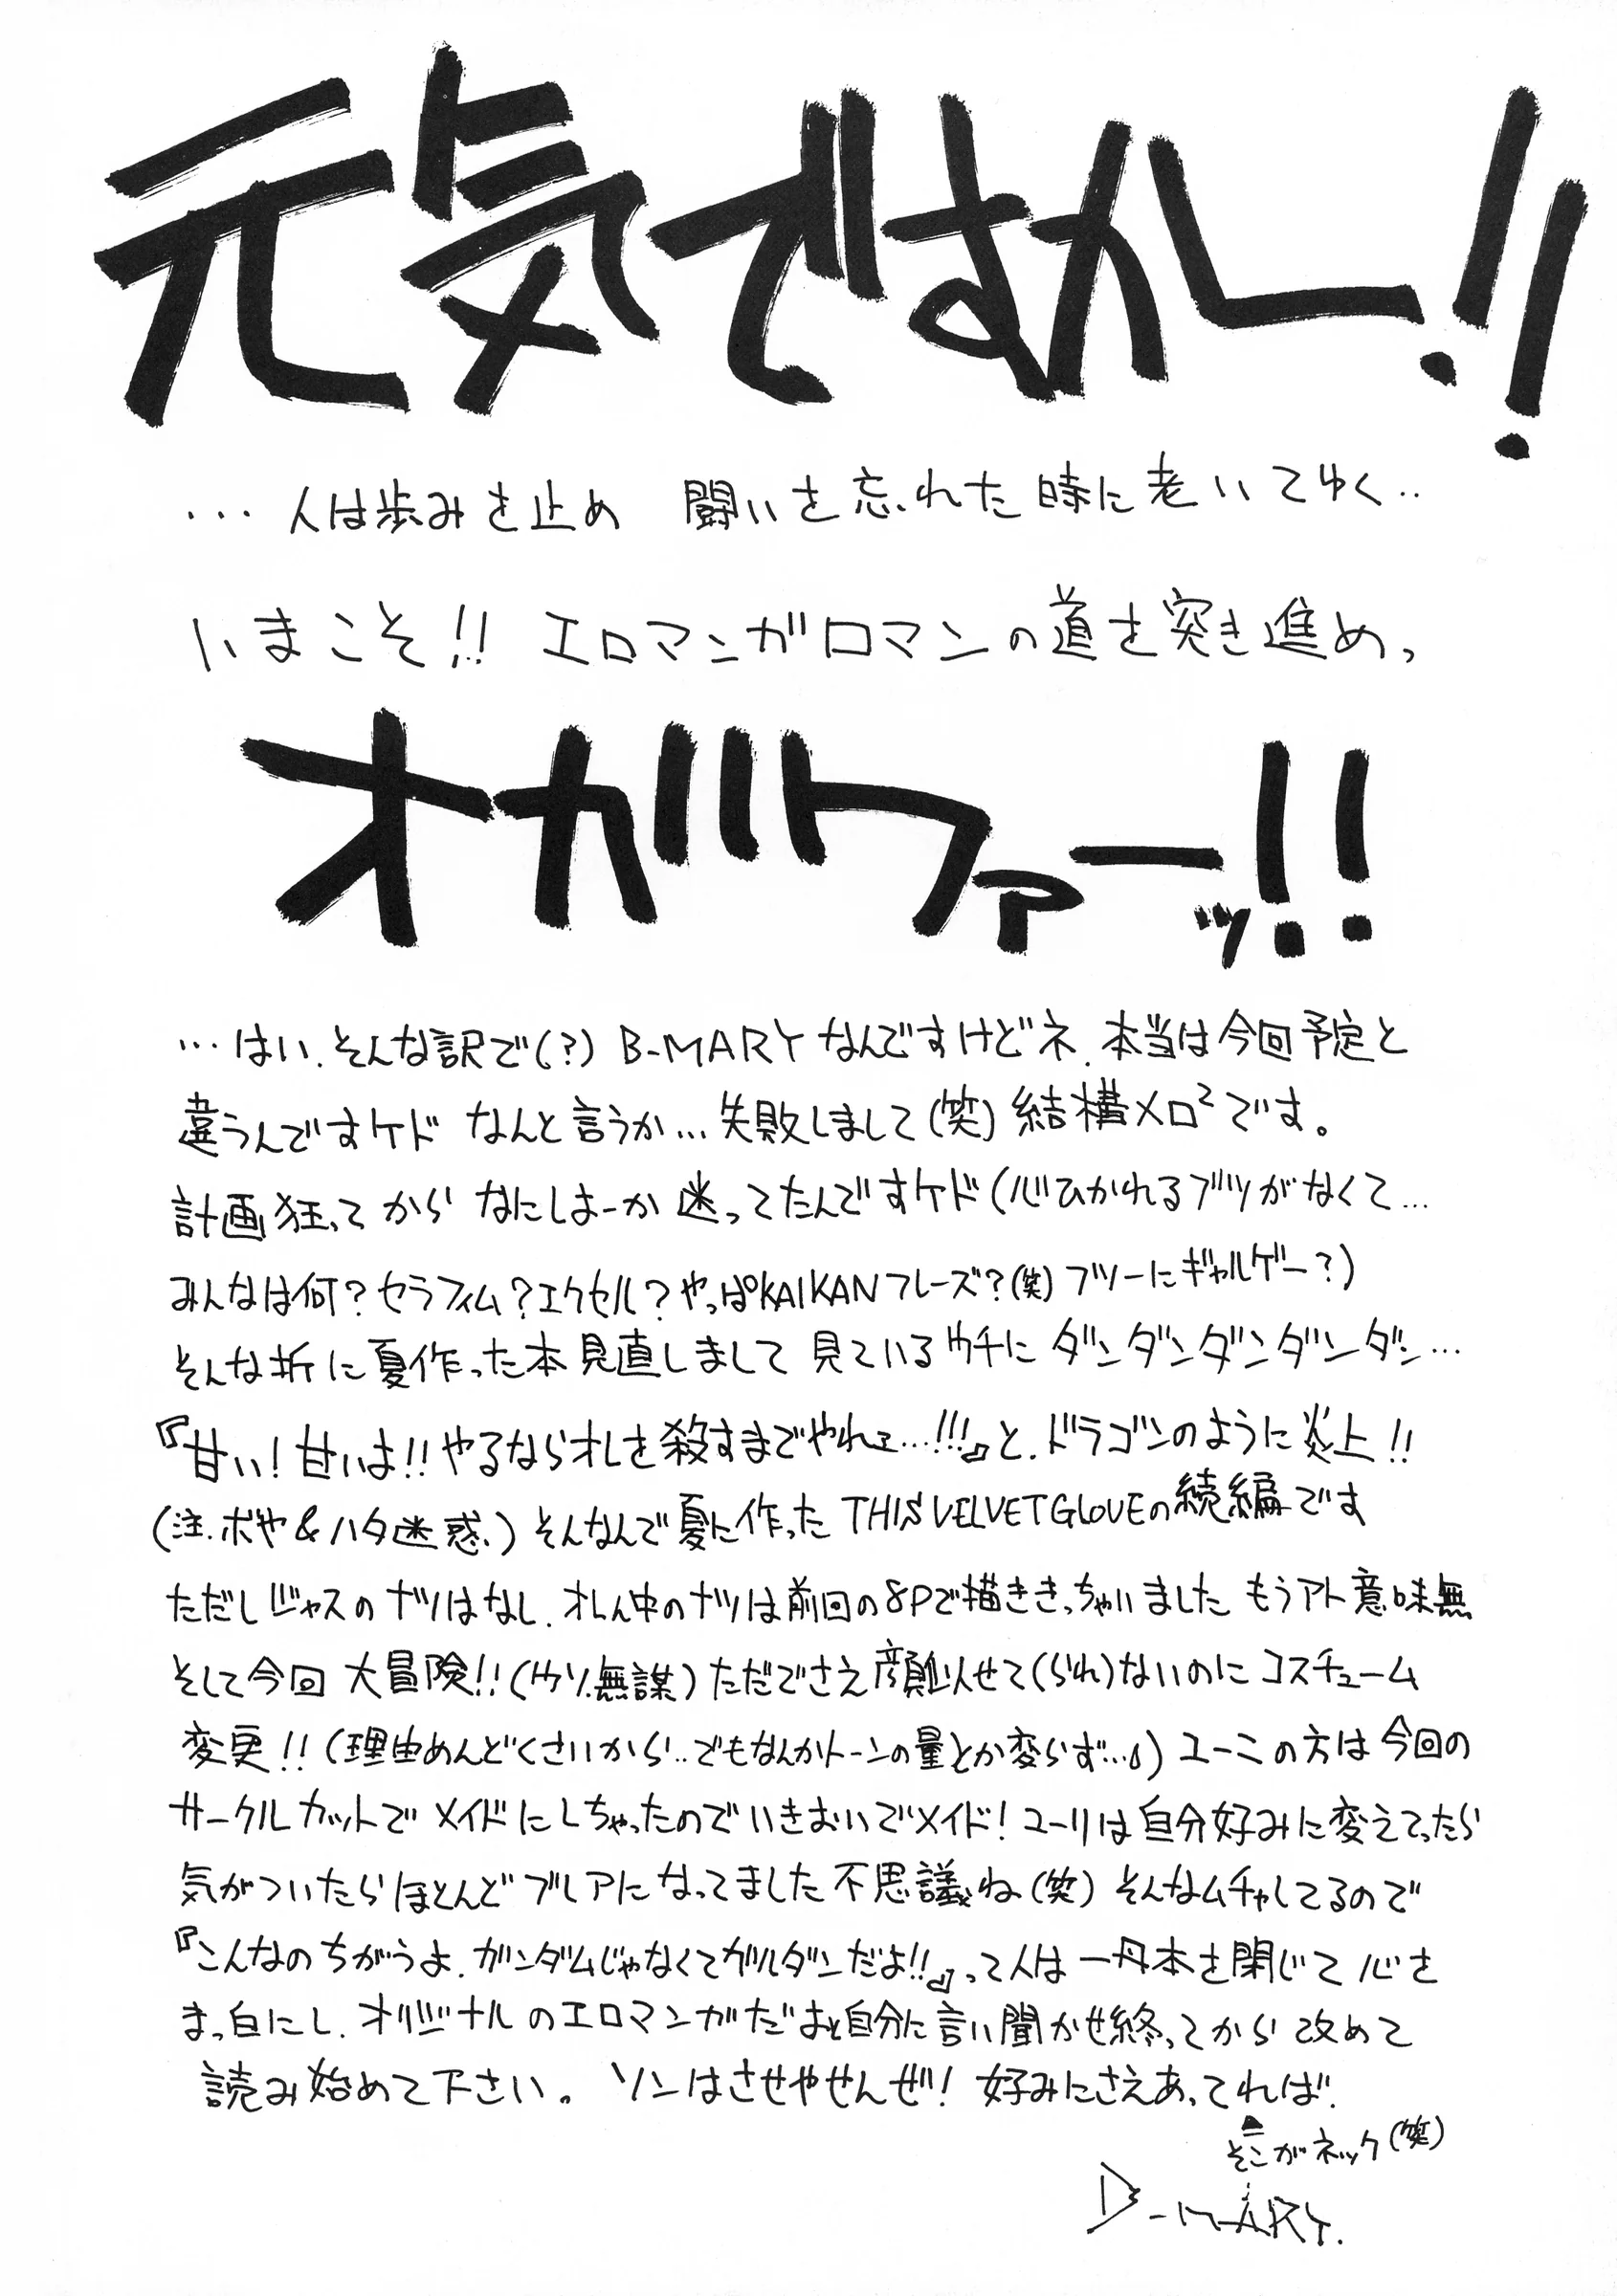 元気ですかー!!
… 人は歩みを止め 闘いを忘れた時に老いてゆく‥
いまこそ!! エロマンガロマンの道を突き進めっ
オガワァーッ!!
…はい.そんな訳で(?) B-MARYなんですけどネ.本当は今回予定と
違うんですケド なんと言うか…失敗しまして(笑)結構メロ²です。
計画狂ってから なにしよーか迷ってたんですケド(心ひかれるブツがなくて…
みんなは何?セラフィム?エクセル?やっぱKAIKANフレーズ?(笑)フツーにギャルゲー?)
そんな折に夏作った本見直しまして 見ているウチに ダンダンダンダンダン…
『甘い!甘いよ!!やるならオレを殺すまでやれェ…!!!』と.ドラゴンのように炎上!!
(注.ボヤ&ハタ迷惑.)そんなんで夏に作った THIS VELVET GLOVEの続編です
ただしジャスのナツはなし.オレん中のナツは前回の8Pで描ききっちゃいました もうアト意味無
そして今回 大冒険!!(ウソ.無謀)ただでさえ顔似せて(られ)ないのにコスチューム
変更!!(理由めんどくさいから‥でもなんかトーンの量とか変らず…)ユーミの方は今回の
サークルカットでメイドにしちゃったのでいきおいでメイド!ユーリは自分好みに変えてったら
気がついたらほとんどブレアになってました不思議ね(笑)そんなムチャしてるので
『こんなのちがうよ.ガンダムじゃなくてガルダンだよ!!』って人は一旦本を閉じて心を
まっ白にし.オリジナルのエロマンガだよと自分に言い聞かせ終ってから改めて
読み始めて下さい。ソンはさせやせんぜ!好みにさえあってれば.
そこがネック(笑)
B-MARY.